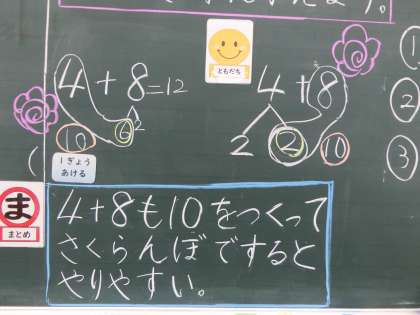 ます。
4+8=12
6 2
10
1ぎょう
あける
ともだち
4+8
2 2 10
①
②
③
ま
まとめ
4+8も10をつくって
さくらんぼですると
やりやすい。